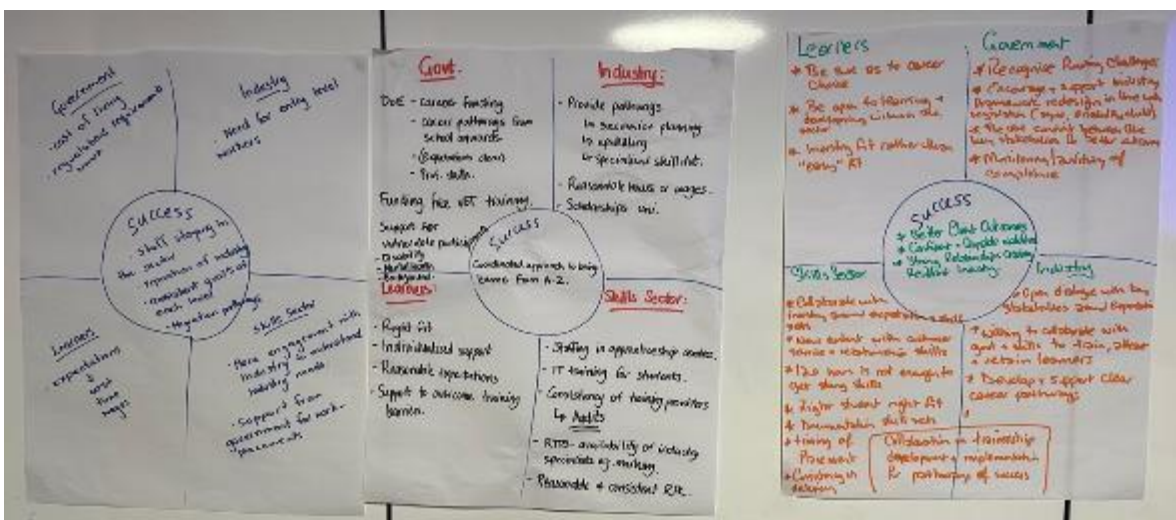 Government
- cost of living
- regulations requirements
Industry
- Need for entry level
workers
Success
- staff staying in
the sector
- reputation of industry
- consistent quality at
each level
- Migration pathways
Learners
- expectations
cost
time
wages
Skills Sector
- More engagement with
industry to understand
industry needs
- Support from
government for work
placements
Govt:
DoE - career funding
- career pathways from
school onwards
Funding free VET training.
Support for
vulnerable participants
- Disability
- Mental health
- Background.
Industry:
- Provide pathways
to succession planning
to upskilling
or specialised skill set.
- Reasonable hours or wages.
- Scholarships uni.
Success
Coordinated approach to bring
teams from A-Z.
Learners:
- Right fit
- Individualised support
- Reasonable expectations
- Support to outcome training
barriers.
Skills Sector:
- Staffing in apprenticeship centres.
- IT training for students.
- Consistency of training providers
↳ Audits
- RTOs - availability of industry
specialists eg. marking.
- Reasonable & consistent RPL.
Learners
* Be sure as to career
choice
* Be open to learning +
developing within the
sector
* Industry fit rather than
"easy"
Government
* Recognise Funding challenges
* Encourage + support industry
framework redesign in line with
legislation
* Be the conduit between the
key stakeholders for better outcomes
* Monitoring/auditing of
compliance
Success
* Better Client Outcomes
* Confident + Capable
* Strong Relationships creating
Resilient Industry.
Skills Sector
* Collaborate with
industry around expectations + skill
sets
* New entrant with customer
service + relationship skills
* 120 hours is not enough to
get strong skills
* Right student right fit
* Documentation skill sets
* Timing of
Placement
* Consistency in
delivery
Industry
* Open dialogue with key
stakeholders around expectations
* Willing to collaborate with
govt + skills to train, attract
+ retain learners
* Develop + support clear
career pathways
Collaboration in traineeship
development + implementation
for pathways of success